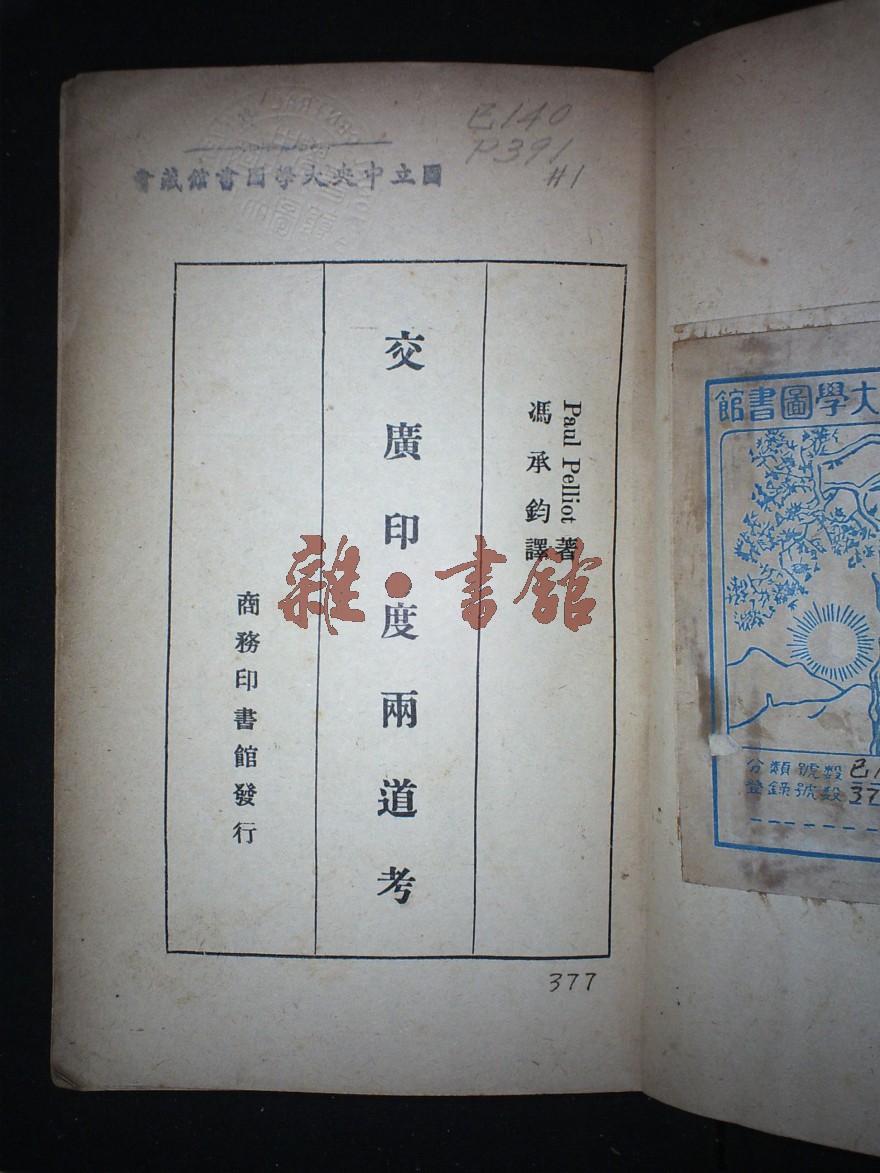 己140
P391
#1
國立中央大學圖書館藏書
Paul Pelliot 著
馮承鈞譯
交廣印度兩道考
商務印書館發行
雜·書館
377
大學圖書館
分類號數 己1
登錄號數 37